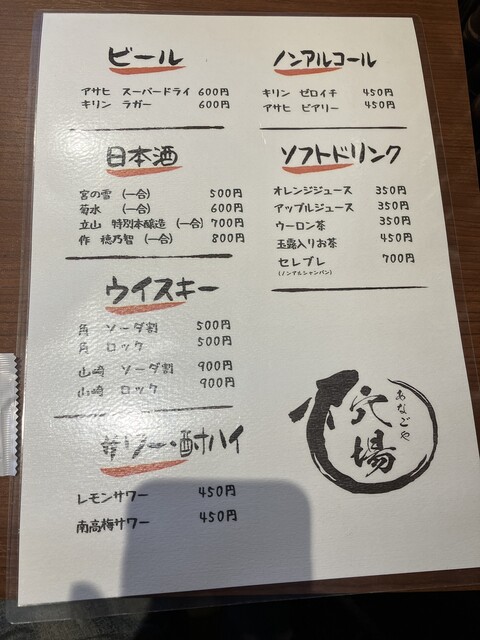 ビール
アサヒ スーパードライ 600円
キリン ラガー 600円
日本酒
宮の雪 (一合) 500円
菊水 (一合) 600円
立山 特別本醸造 (一合) 700円
作 穂乃智 (一合) 800円
ウイスキー
角 ソーダ割 500円
角 ロック 500円
山崎 ソーダ割 900円
山崎 ロック 900円
サワー・酎ハイ
レモンサワー 450円
南高梅サワー 450円
ノンアルコール
キリン ゼロイチ 450円
アサヒ ビアリー 450円
ソフトドリンク
オレンジジュース 350円
アップルジュース 350円
ウーロン茶 350円
玉露入りお茶 450円
セレブレ 700円
(ノンアルシャンパン)
穴場
あなごや